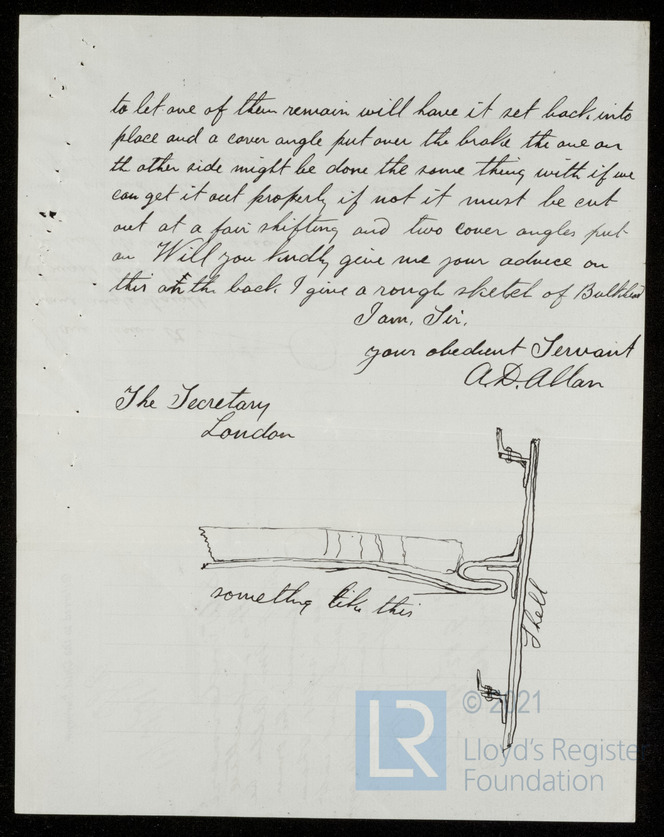 to let one of them remain will have it set back into
place and a cover angle put over the brake the one on
th other side might be done the same thing with if we
can get it out properly if not it must be cut
out at a fair shifting and two cover angles put
on Will you kindly give me your advice on
this at the back I give a rough sketch of Bulkhead
I am, Sir,
your obedient Servant
A. D. Allan
The Secretary
London
something like this
Shell
LR
© 2021
Lloyd's Registe
Foundation